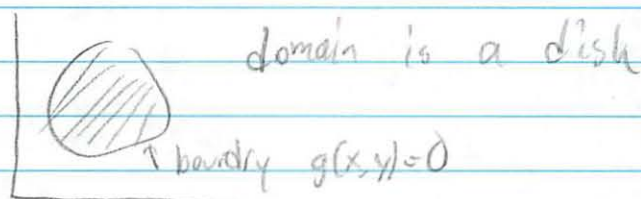 domain is a disk
boundry g(x,y)=0